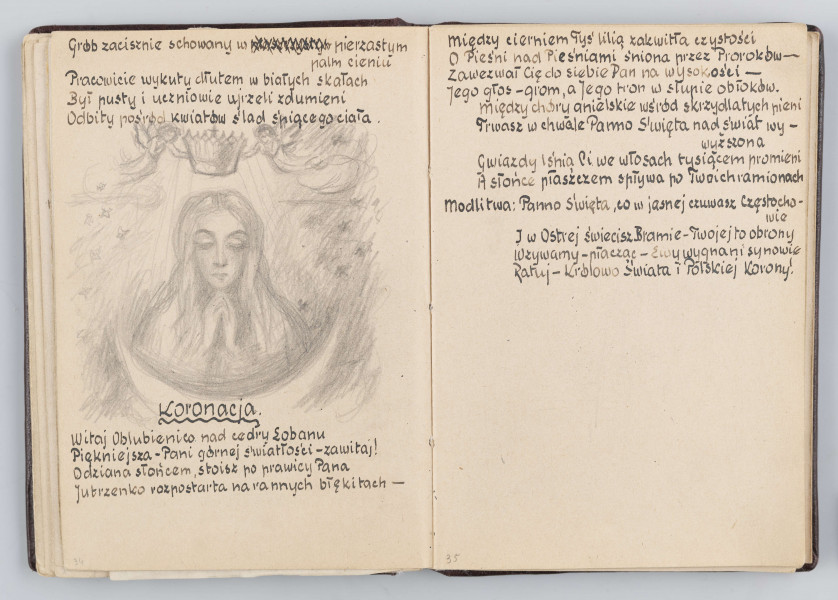 Grób zacisznie schowany w pierzastym
palm cieniu
Pracowicie wykuty dłutem w białych skałach
Był pusty i uczniowie ujrzeli zdumieni
Odbity pośród kwiatów ślad śpiącego ciała.
Koronacja.
Witaj Oblubienico nad cedry Lobanu
Piękniejsza - Pani górnej światłości - zawitaj!
Odziana słońcem, stoisz po prawicy Pana
Jutrzenko rozpostarta na rannych błękitach —
34
między cierniem Tyś lilią zakwitła czystości
O Pieśni nad Pieśniami śniona przez Proroków —
Zawezwał Cię do siebie Pan na wysokości —
Jego głos - grom, a Jego tron w słupie obłoków.
między chóry anielskie wśród skrzydlatych pieni
Trwasz w chwale Panno Święta nad świat wy-
wyższona
Gwiazdy lśnią Ci we włosach tysiącem promieni
A słońce płaszczem spływa po Twoich ramionach
Modlitwa: Panno Święta, co w jasnej czuwasz Częstocho-
wie
I w Ostrej świecisz Bramie - Twojej to obrony
Wzywamy - płacząc - Ewy wygnani synowie
Ratuj - Królowo Świata i Polskiej Korony!
35